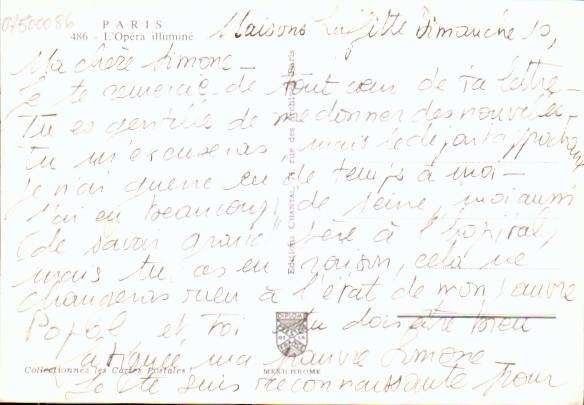 07500086
PARIS
486 - L'Opéra illuminé
Maisons Laffitte Dimanche 10,
Ma chère Simone -
Je te remercie de tout cœur de ta lettre -
Tu es gentille de me donner des nouvelles,
tu m'excuseras mais le départ approchant
je n'ai guère eu de temps à moi -
J'ai eu beaucoup de peine, moi aussi
de savoir grand père à l'hopital,
mais tu as eu raison, cela ne
changeras rien à l'état de mon pauvre
Popol et toi tu dois être bien
ma pauvre Simone
Je te suis reconnaissante pour
Editions CHANTAL, rue des Paris
DIPLOME
Collectionnez les Cartes Postales !
MEXICHROME